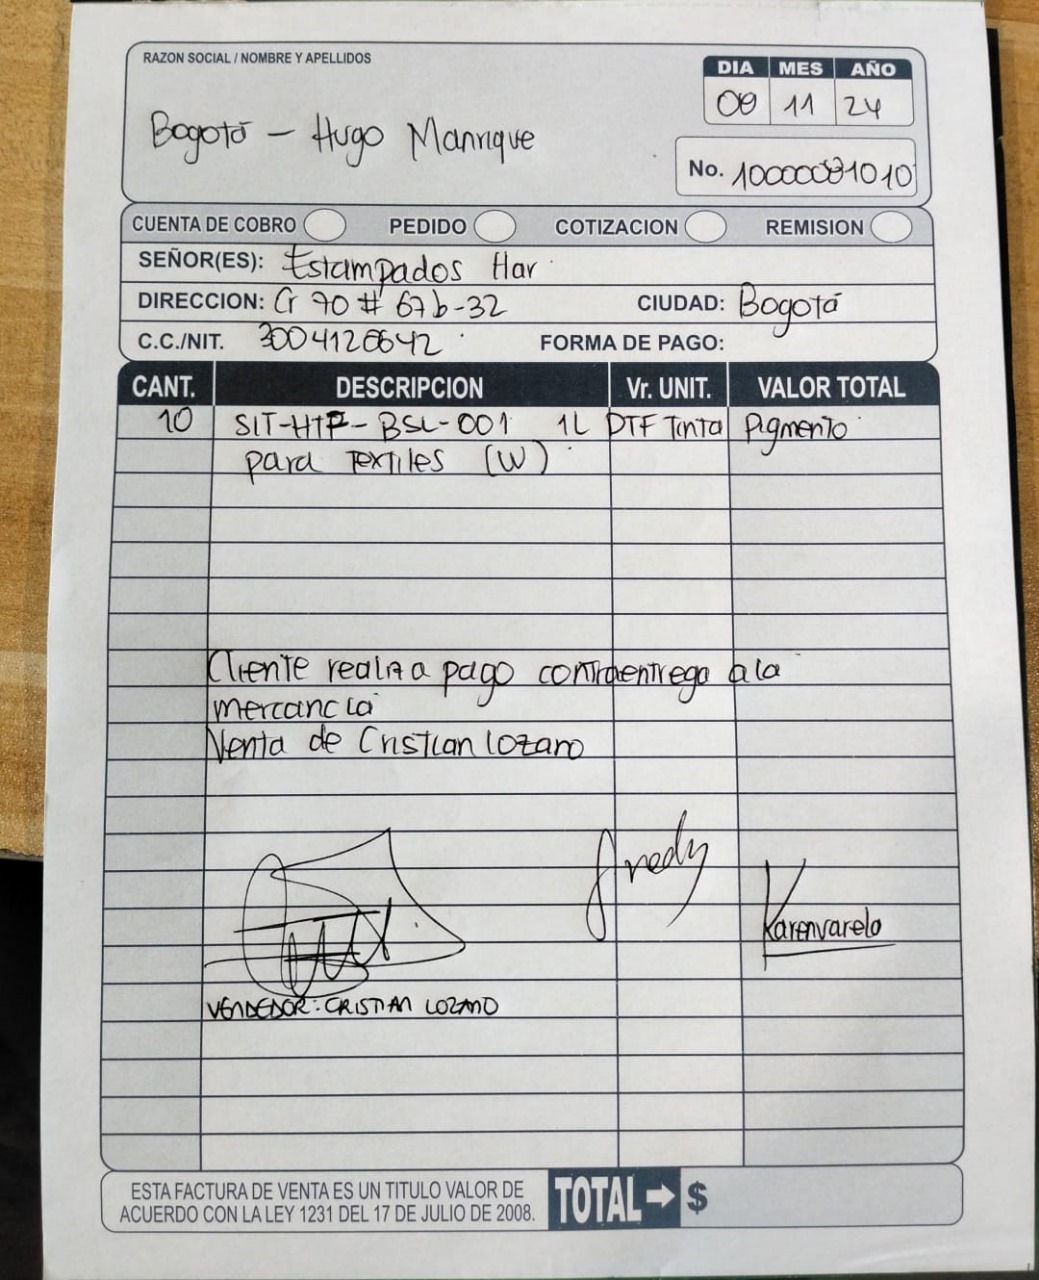 RAZON SOCIAL / NOMBRE Y APELLIDOS
DIA MES AÑO
09 11 24
Bogotá - Hugo Manrique
No. 10000081010
CUENTA DE COBRO PEDIDO COTIZACION REMISION
SEÑOR(ES): Estampados Har
DIRECCION: Cr 70 # 67b-32 CIUDAD: Bogotá
C.C./NIT. FORMA DE PAGO:
CANT. DESCRIPCION Vr. UNIT. VALOR TOTAL
10 SIT-HTP-BSL-001 1L DTF Tinta Pigmento
para Textiles (W)
Cliente realiza pago contraentrega a la
mercancia
Venta de Cristian Lozano
Fredy
Karenvarela
VENDEDOR: CRISTIAN LOZANO
ESTA FACTURA DE VENTA ES UN TITULO VALOR DE
ACUERDO CON LA LEY 1231 DEL 17 DE JULIO DE 2008.
TOTAL → $